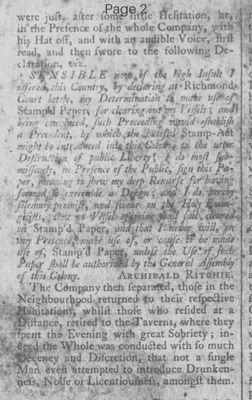 Page 2
were just, after some little Hesitation, he,
in the Presence of the whole Company, with
his Hat off, and with an audible Voice, first
read, and then swore to the following De-
claration, viz.
SENSIBLE now of the high Insult I
offered this Country, by declaring at Richmond
Court lately, my Determination to make use of
Stamp'd Paper, for clearing out my Vessels; and
being convinced, such Proceeding would establish
a Precedent, by which the hateful Stamp-Act
might be introduced into this Colony, to the utter
Destruction of public Liberty; I do most sub-
missively, in Presence of the Public, sign this Pa-
per, meaning to shew my deep Remorse for having
formed so execrable a Design; and I do hereby
solemnly promise, and swear on the Holy Evan-
gelists, that no Vessel of mine shall sail, cleared
on Stamp'd Paper, and that I never will, on
any Pretence, make use of, or cause to be made
use of, Stamp'd Paper, unless the Use of such
Paper shall be authorized by the General Assembly
of this Colony. ARCHIBALD RITCHIE.
The Company then separated, those in the
Neighbourhood returned to their respective
Habitations, whilst those who resided at a
Distance, retired to the Taverns, where they
spent the Evening with great Sobriety; in-
deed the Whole was conducted with so much
Decency and Discretion, that not a single
Man even attempted to introduce Drunken-
ness, Noise or Licentiousness, amongst them.